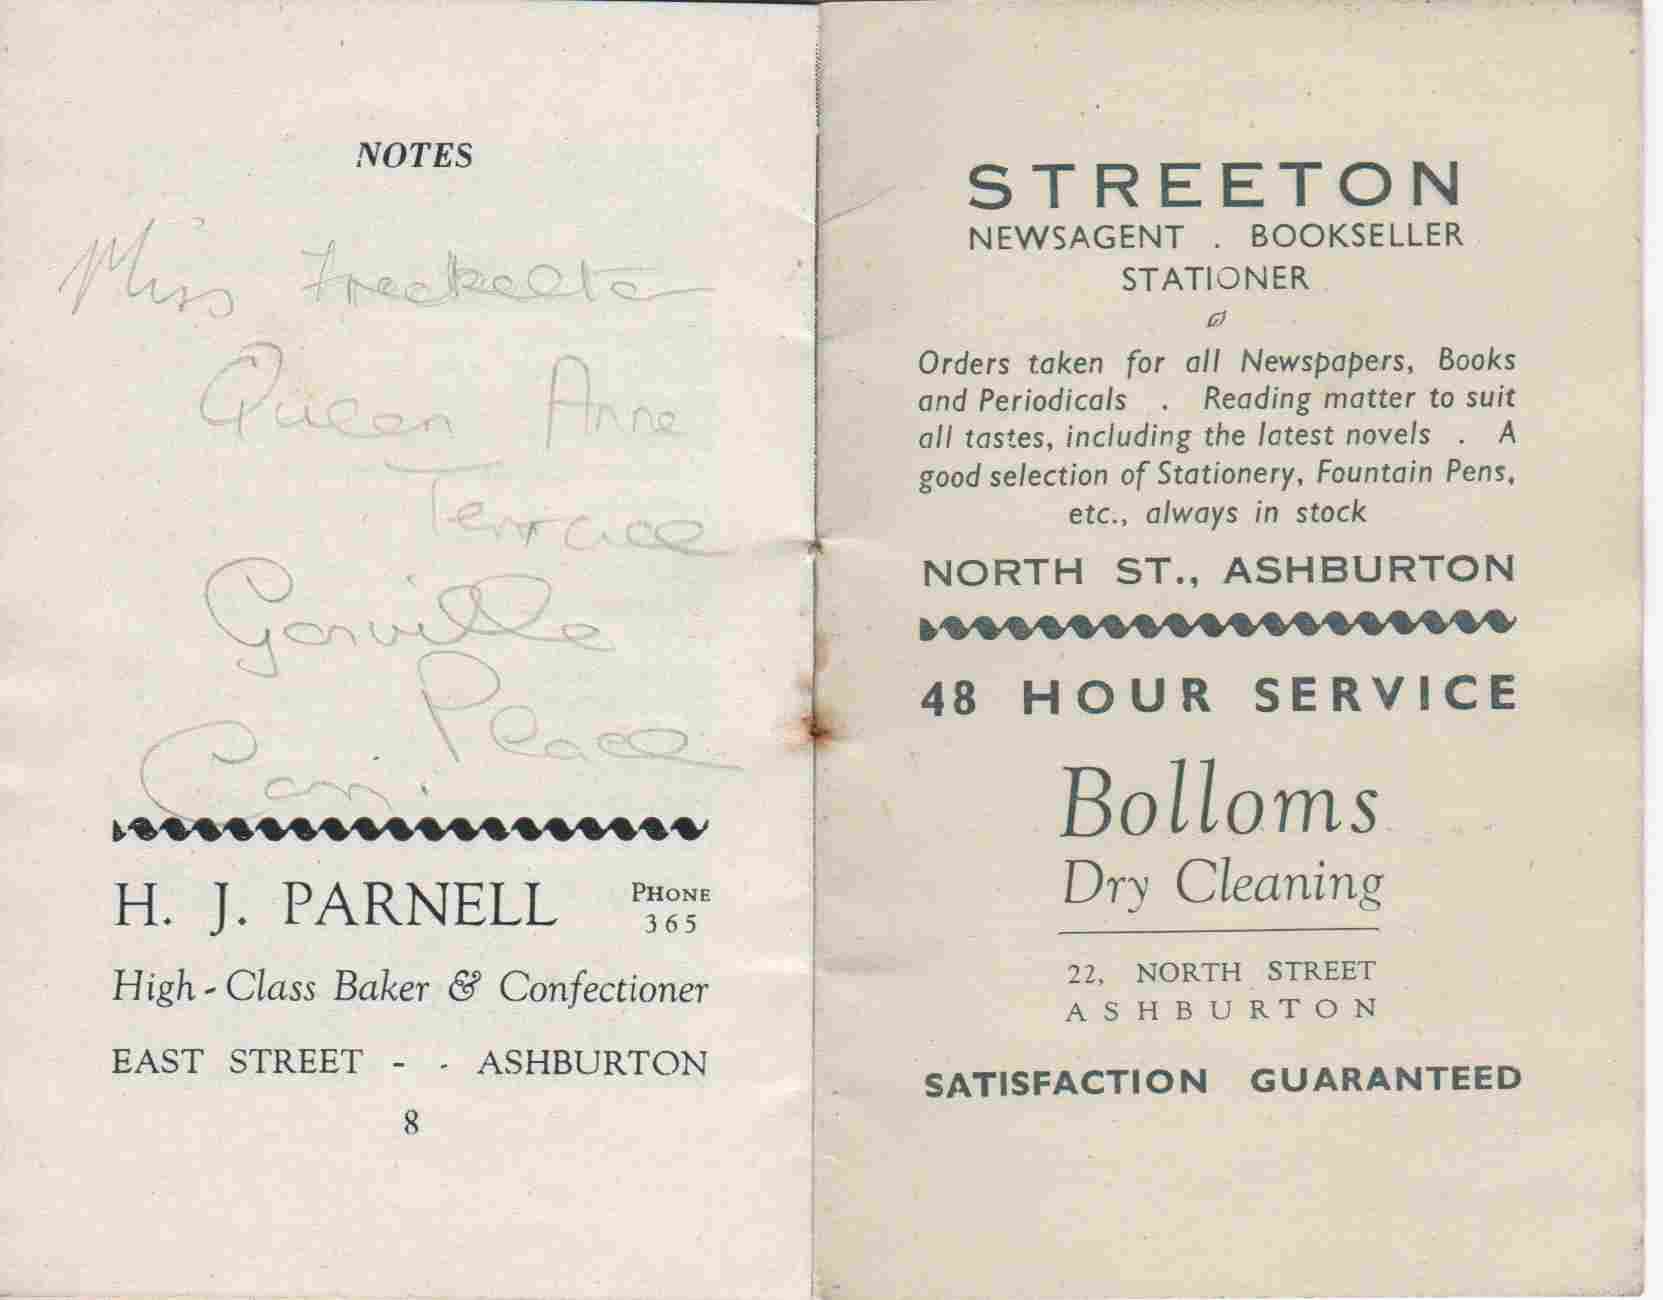 NOTES
Miss
Queen Anne
Terrace
Gonville
Place
Cam.
H. J. PARNELL PHONE
365
High-Class Baker & Confectioner
EAST STREET - - ASHBURTON
8
STREETON
NEWSAGENT . BOOKSELLER
STATIONER
Orders taken for all Newspapers, Books
and Periodicals . Reading matter to suit
all tastes, including the latest novels . A
good selection of Stationery, Fountain Pens,
etc., always in stock
NORTH ST., ASHBURTON
48 HOUR SERVICE
Bolloms
Dry Cleaning
22, NORTH STREET
ASHBURTON
SATISFACTION GUARANTEED